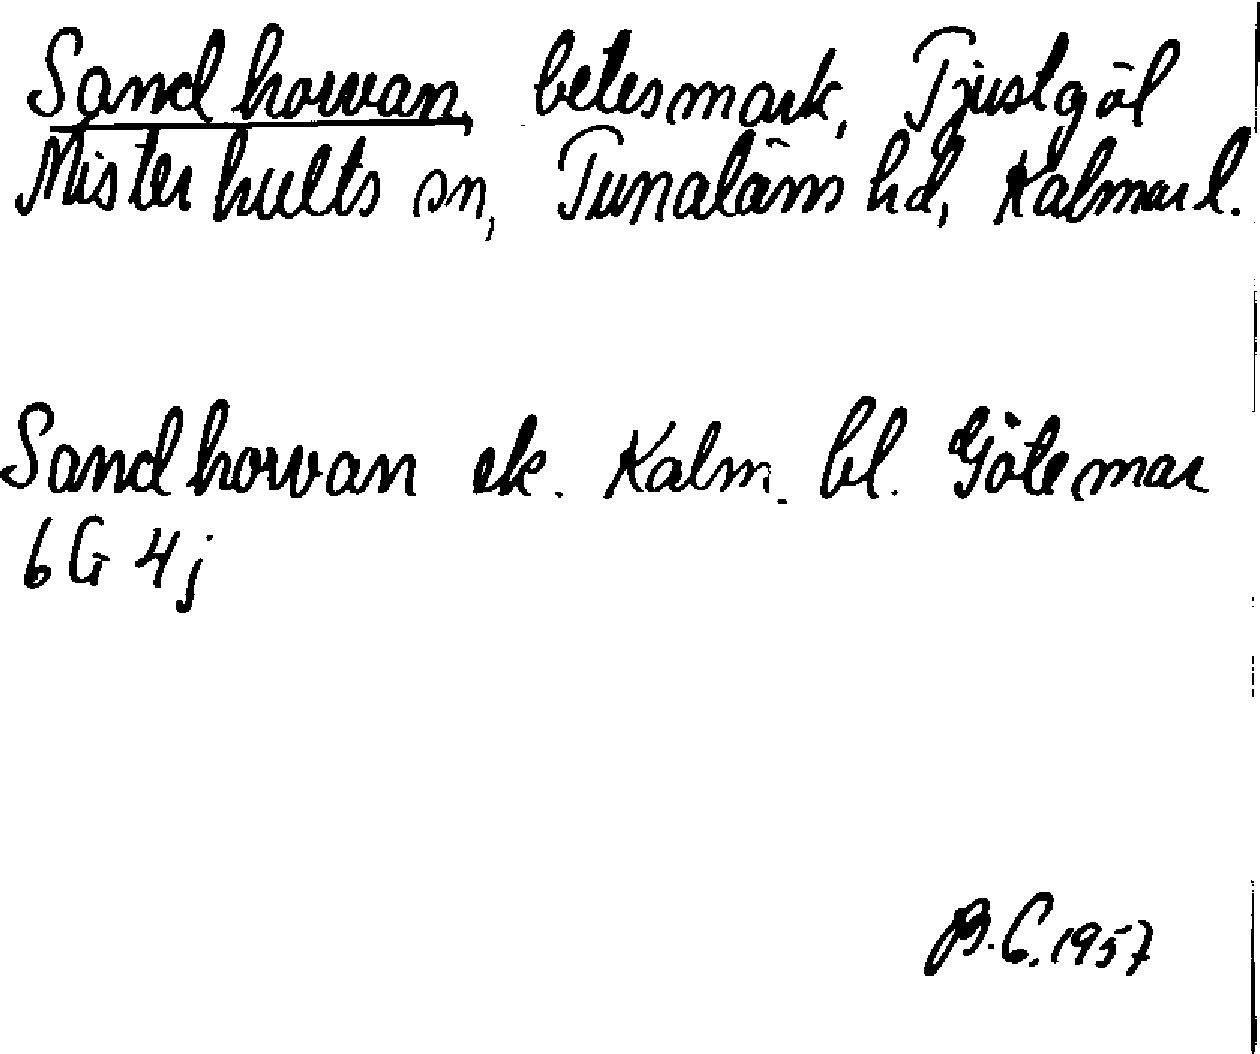 Sandhorvan, betesmark, Tjustgöl
Misterhults sn, Tunaläns hd, Kalmar l.
Sandhorvan ek. Kalm. bl. Götemar
6G 4j
B.C. 1957